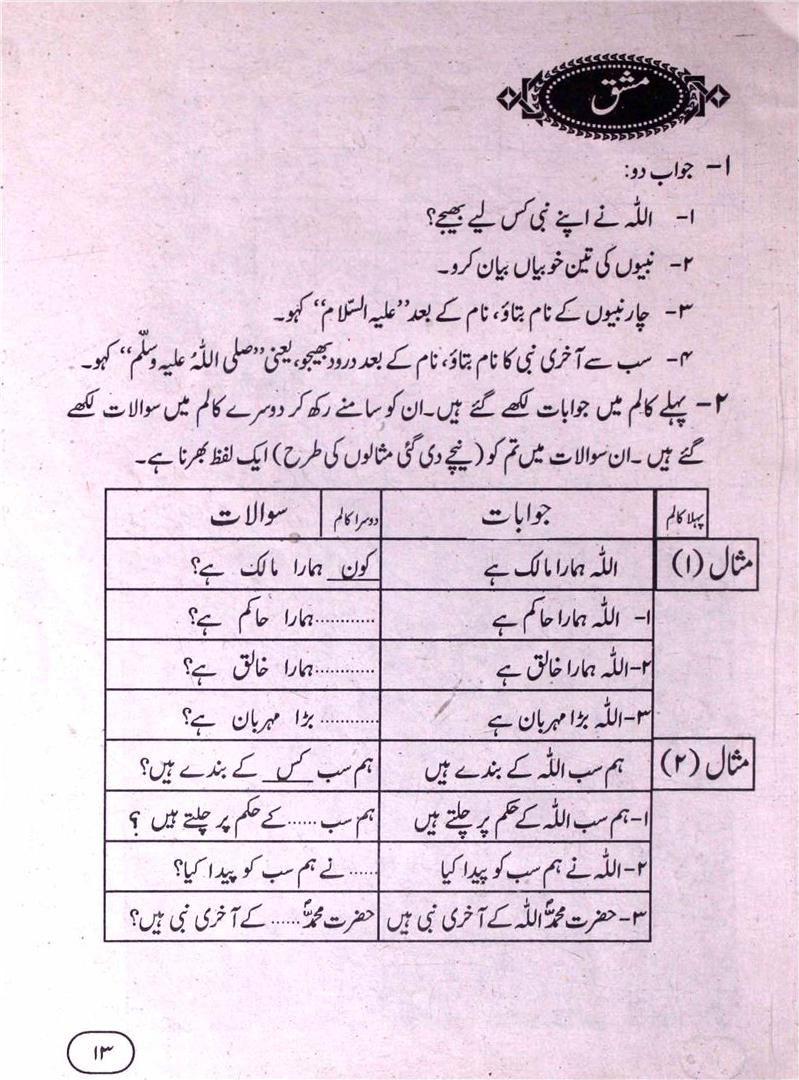 مشق
۱- جواب دو:
۱- اللہ نے اپنے نبی کس لیے بھیجے؟
۲- نبیوں کی تین خوبیاں بیان کرو۔
۳- چار نبیوں کے نام بتاؤ، نام کے بعد ”علیہ السّلام“ کہو۔
۴- سب سے آخری نبی کا نام بتاؤ، نام کے بعد درود بھیجو، یعنی ”صلی اللہُ علیہ وسلّم“ کہو۔
۲- پہلے کالم میں جوابات لکھے گئے ہیں۔ ان کو سامنے رکھ کر دوسرے کالم میں سوالات لکھے
گئے ہیں۔ ان سوالات میں تم کو (نیچے دی گئی مثالوں کی طرح) ایک لفظ بھرنا ہے۔
پہلا کالم جوابات دوسرا کالم سوالات
مثال (۱) اللہ ہمارا مالک ہے کون ہمارا مالک ہے؟
۱- اللہ ہمارا حاکم ہے ............ہمارا حاکم ہے؟
۲- اللہ ہمارا خالق ہے ............ہمارا خالق ہے؟
۳- اللہ بڑا مہربان ہے ............ بڑا مہربان ہے؟
مثال (۲) ہم سب اللہ کے بندے ہیں ہم سب کس کے بندے ہیں؟
۱- ہم سب اللہ کے حکم پر چلتے ہیں ہم سب ...... کے حکم پر چلتے ہیں ؟
۲- اللہ نے ہم سب کو پیدا کیا ...... نے ہم سب کو پیدا کیا؟
۳- حضرت محمدؐ اللہ کے آخری نبی ہیں حضرت محمدؐ ...... کے آخری نبی ہیں؟
۱۳